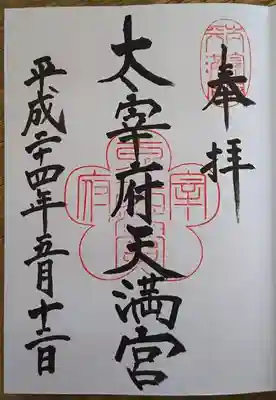 奉拝
太宰府天満宮
平成二十四年五月